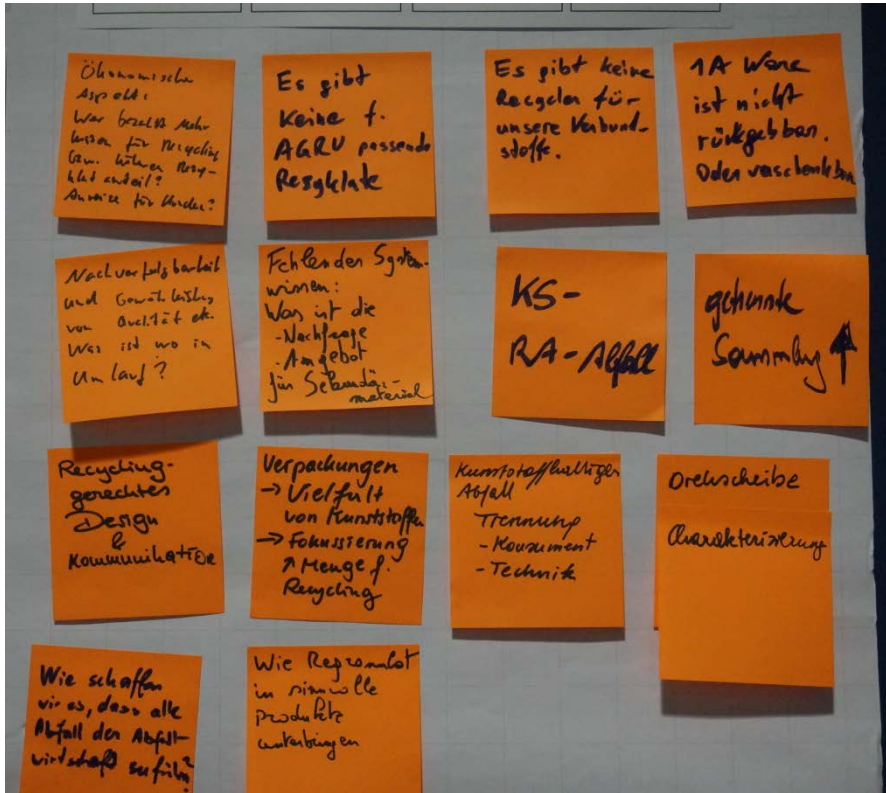 Ökonomische
Aspekte:
Wer bezahlt Mehr
kosten für Recycling
bzw. höheren Rezy-
klatanteil?
Anreize für Kunden?
Es gibt
Keine f.
AGRU passende
Rezyklate
Es gibt keine
Recycler für
unsere Verbund-
stoffe.
1A Ware
ist nicht
rückgebbar.
Oder verschenkbar
Nachverfolgbarkeit
und Gewährleistung
von Qualität etc.
Was ist wo in
Umlauf?
Fehlendes System-
wissen:
Was ist die
- Nachfrage
- Angebot
für Sekundär-
material
KS-
RA-Abfall
getrennte
Sammlung ↑
Recycling-
gerechtes
Design
&
Kommunikation
Verpackungen
→ Vielfalt
von Kunststoffen
→ Fokussierung
↑ Menge f.
Recycling
Kunststoffhaltiger
Abfall
Trennung
- Konsument
- Technik
Drehscheibe
Charakterisierung
Wie schaffen
wir es, dass alle
Abfall der Abfall-
wirtschaft zuführen?
Wie
in sinnvolle
Produkte
unterbringen